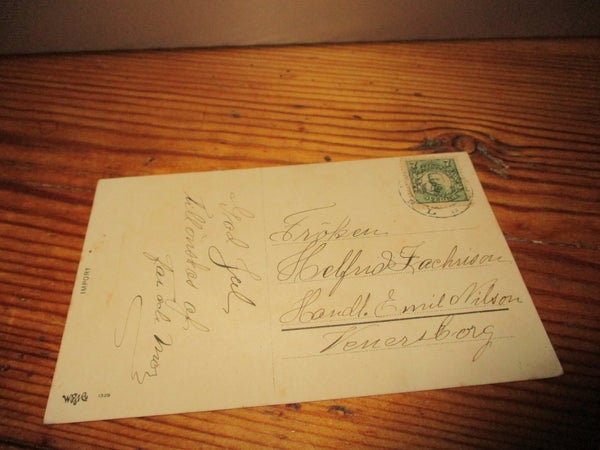 God Jul
tillönskas af
far och Mor
Fröken
Helfrid Zachrison
Handl. Emil Nilson
Venersborg
IMPORT